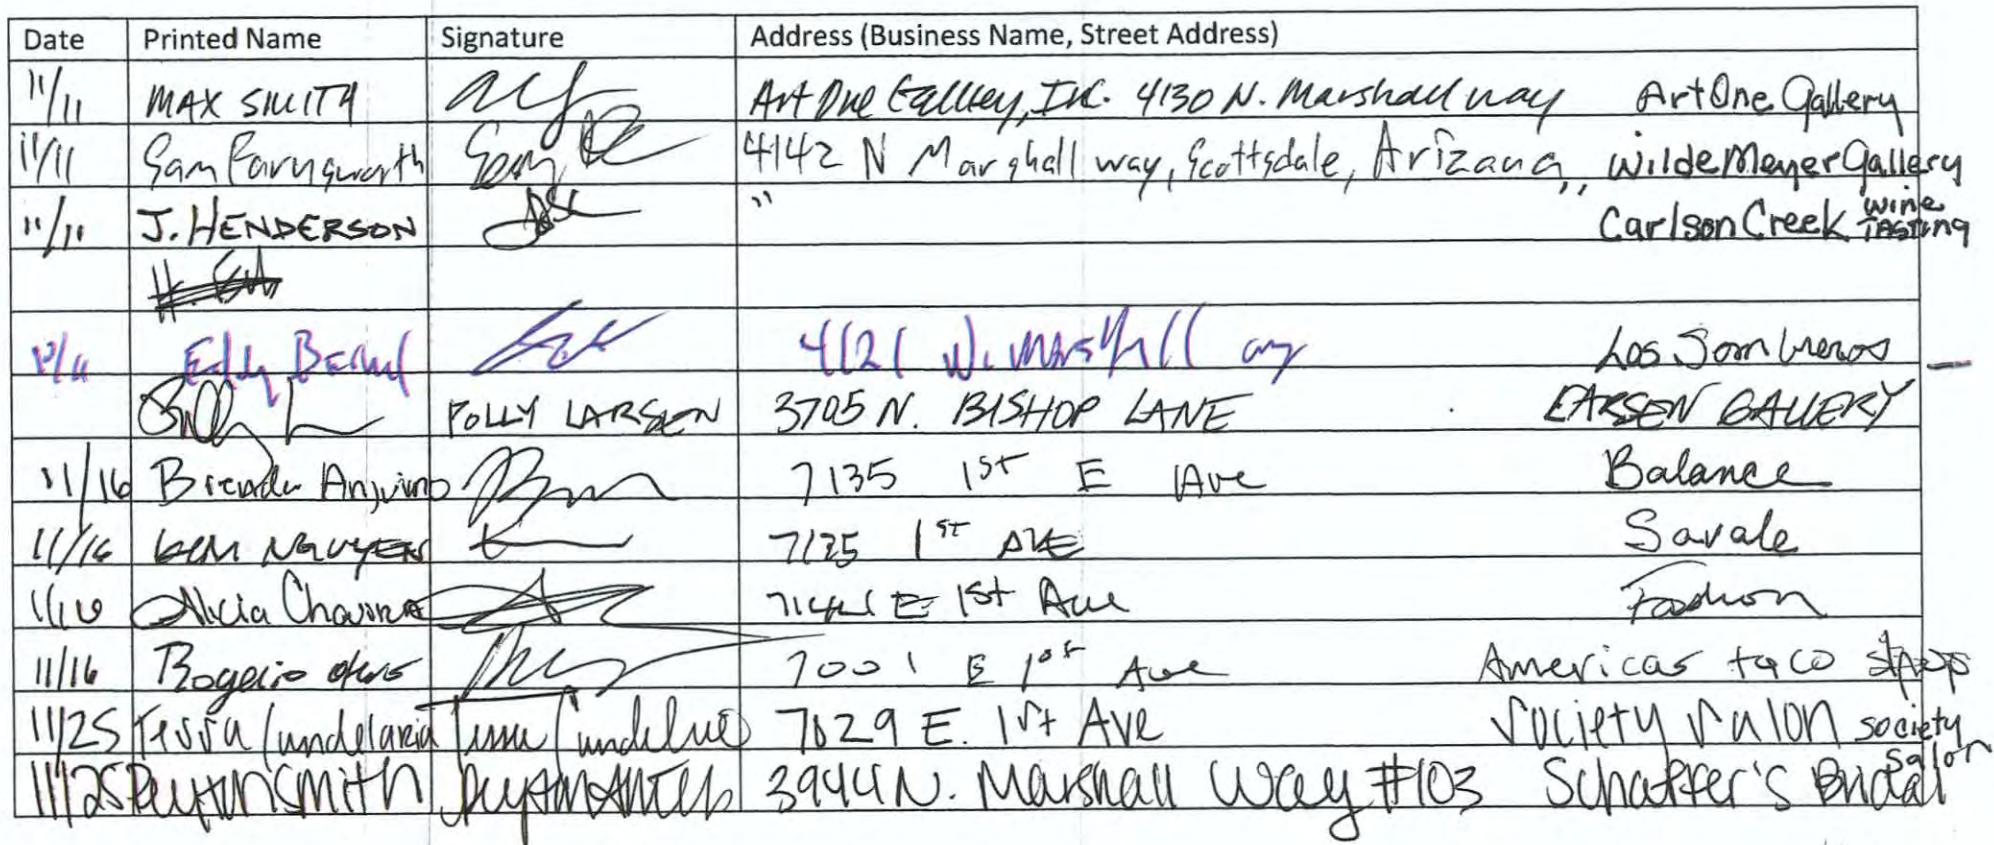 Date Printed Name Signature Address (Business Name, Street Address)
11/11 MAX SMITH Art One Gallery, Inc. 4130 N. Marshall way ArtOne Gallery
11/11 Sam Farnsworth 4142 N Marshall way, Scottsdale, Arizana,, WildeMeyerGallery
11/11 J. HENDERSON " Carlson Creek wine TASTING
4121 N. Marshall Los Sombreros
POLLY LARSEN 3705 N. BISHOP LANE LARSEN GALLERY
11/16 Brenda 7135 1st E Ave Balance
11/16 NGUYEN 7125 1st AVE Savale
Alicia E 1st Ave Fashion
11/16 Rogelio 7001 E 1st Ave Americas taco shops
11/25 Tessa Candelaria 7029 E. 1st Ave Society Salon society salon
11/25 Smith 3944 N. Marshall Way #103 Schaffer's Bridal